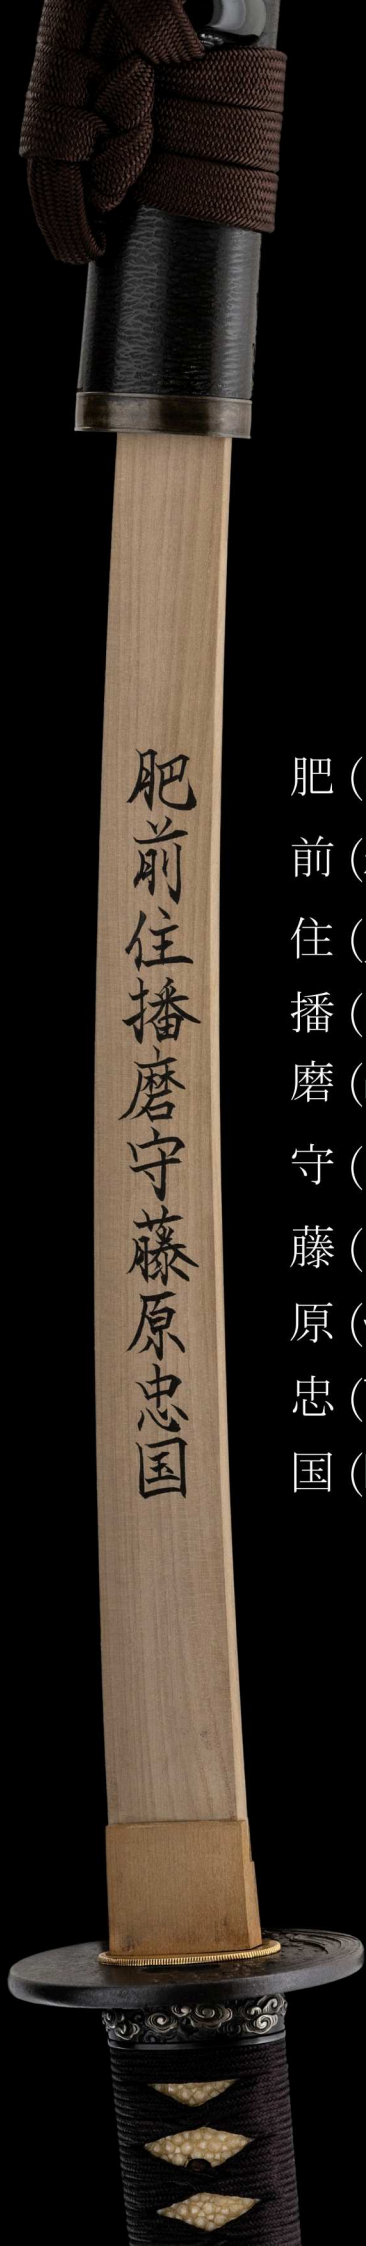 肥前住播磨守藤原忠国
肥 (
前 (
住 (
播 (
磨 (
守 (
藤 (
原 (
忠 (
国 (